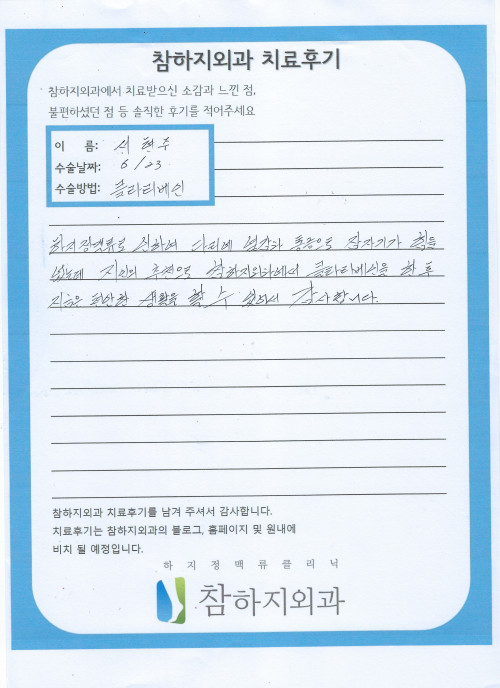 참하지외과 치료후기
참하지외과에서 치료받으신 소감과 느낀 점,
불편하셨던 점 등 솔직한 후기를 적어주세요
이 름: 서현주
수술날짜: 6/23
수술방법: 클라리베인
하지정맥류로 심하여 다리에 열감과 통증으로 잠자기가 힘들
었는데 지인의 추천으로 참하지외과에서 클라리베인을 한 후
지금은 편안한 생활을 할 수 있어서 감사합니다.
참하지외과 치료후기를 남겨 주셔서 감사합니다.
치료후기는 참하지외과의 블로그, 홈페이지 및 원내에
비치 될 예정입니다.
하지정맥류클리닉
참하지외과